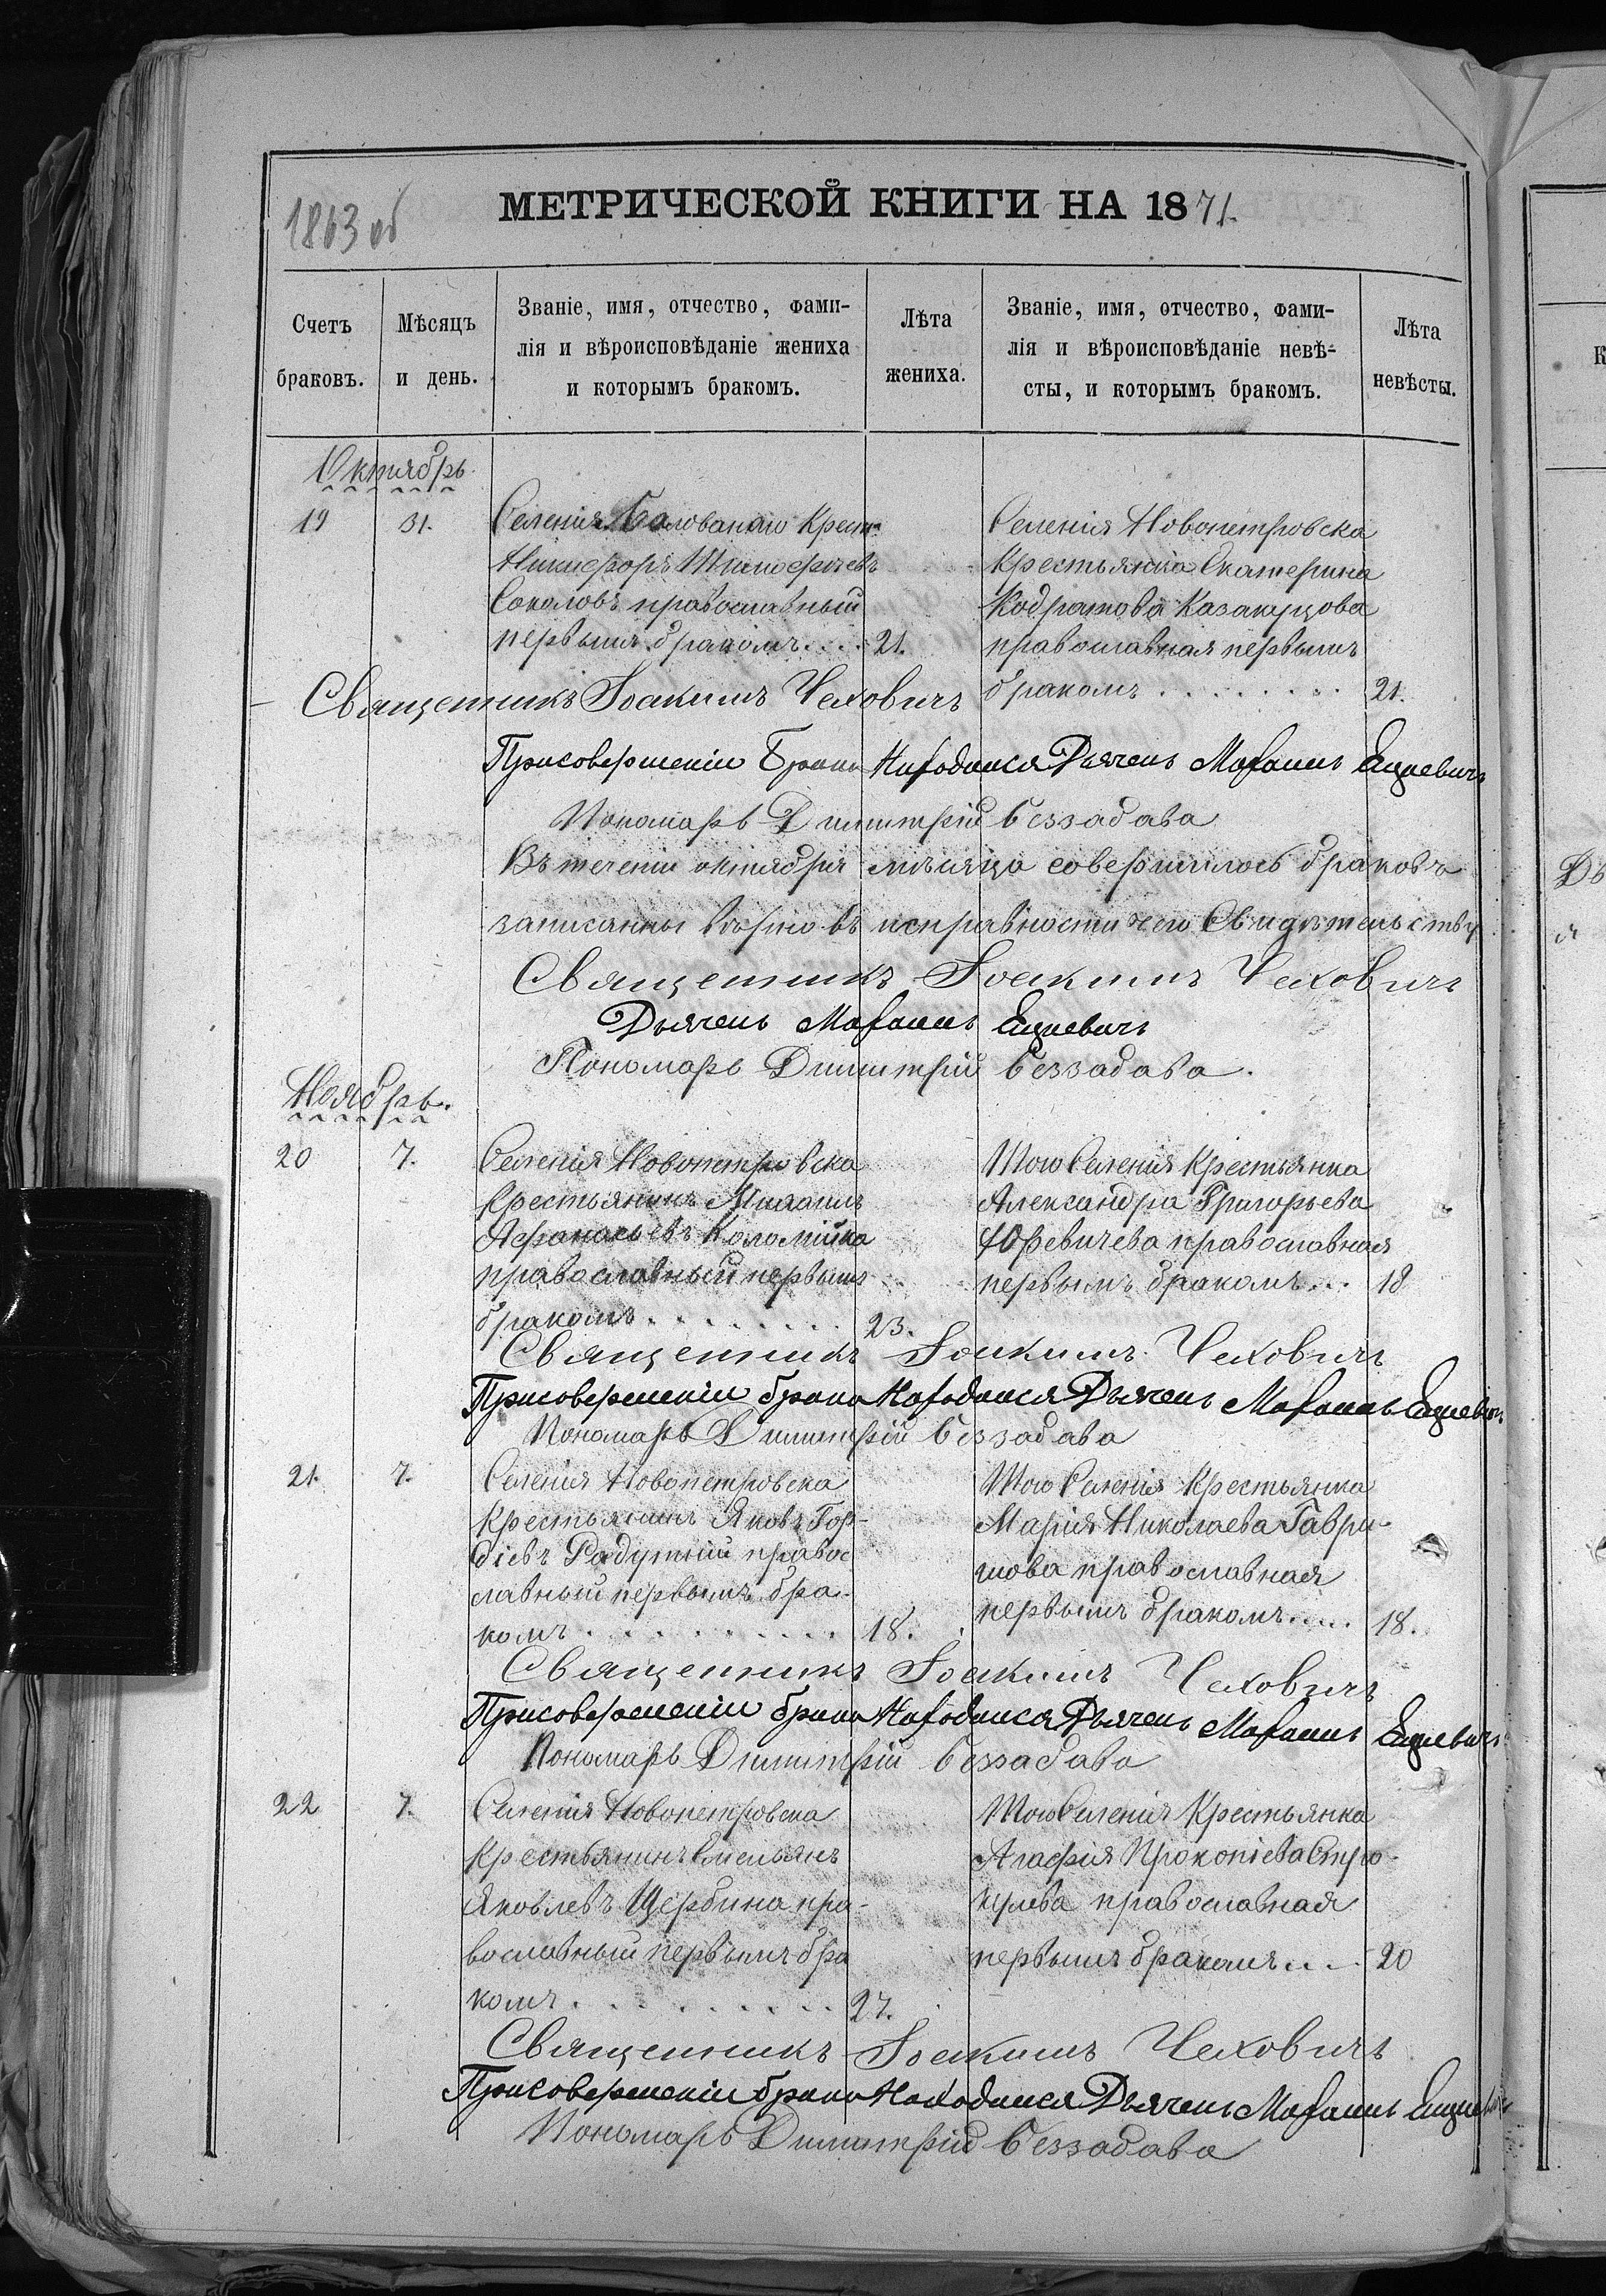 1863 об
МЕТРИЧЕСКОЙ КНИГИ НА 1871.
Счетъ браковъ.
Мѣсяцъ и день.
Званіе, имя, отчество, фами-
лія и вѣроисповѣданіе жениха
и которымъ бракомъ.
Лѣта жениха.
Званіе, имя, отчество, фами-
лія и вѣроисповѣданіе невѣ-
сты, и которымъ бракомъ.
Лѣта невѣсты.
Октябрь
19 31.
Селенія Крест.
Никифоръ Тимофѣевъ
Соколовъ православный
первымъ бракомъ.... 21.
Селенія Новопетровска
Крестьянка Екатерина
Кодратова Казакуцова
православная первымъ
бракомъ........ 21.
Священникъ Іоакимъ Чехович
Присовершеніи Брака Находился Дьячекъ
Пономарь Димитрій Беззабава
Въ теченіи октября мѣсяца совершилось браковъ
записанны вѣрно въ исправности чего Свидѣтельству
Священникъ Іоакимъ Чеховичъ
Дьячекъ
Пономарь Димитрій Беззабава.
Ноябрь.
20 7.
Селенія Новопетровска
Крестьянинъ Михаилъ
Афанасьевъ Коломійка
православный первымъ
бракомъ........ 23.
Того Селенія Крестьянка
Александра Григорьева
Юревичева православная
первымъ бракомъ... 18
Священникъ Іоакимъ Чеховичъ
Присовершеніи брака Находился Дьячекъ
Пономарь Димитрій Беззабава
21. 7.
Селенія Новопетровска
Крестьянинъ Яковъ Гор-
діевъ Радутній правос
лавный первымъ бра-
комъ.......... 18.
Того Селенія Крестьянка
Марія Николаева Гаври-
шова православная
первымъ бракомъ..... 18.
Священникъ Іоакимъ Чеховичъ
Присовершеніи брака Находился Дьячекъ
Пономарь Димитрій Беззабава
22 7.
Селенія Новопетровска
Крестьянинъ Емельянъ
Яковлевъ Щербина пра-
вославный первымъ бра
комъ.......... 27.
Того Селенія Крестьянка
Агафія Прокопіева
православная
первымъ бракомъ.... 20
Священникъ Іоакимъ Чеховичъ
Присовершеніи брака Находился Дьячекъ
Пономарь Димитрій Беззабава